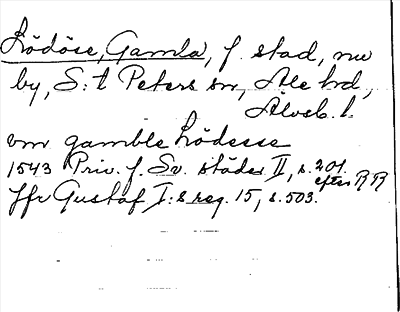 Lödöse, Gamla, f. stad, nu
by, S:t Peters sn, Ale hd,
Älvsb. l.
vm gamble Lödesse
1543 Priv. f. Sv. städer II, s. 201.
efter RR
Jfr Gustaf I:s reg. 15, s. 503.